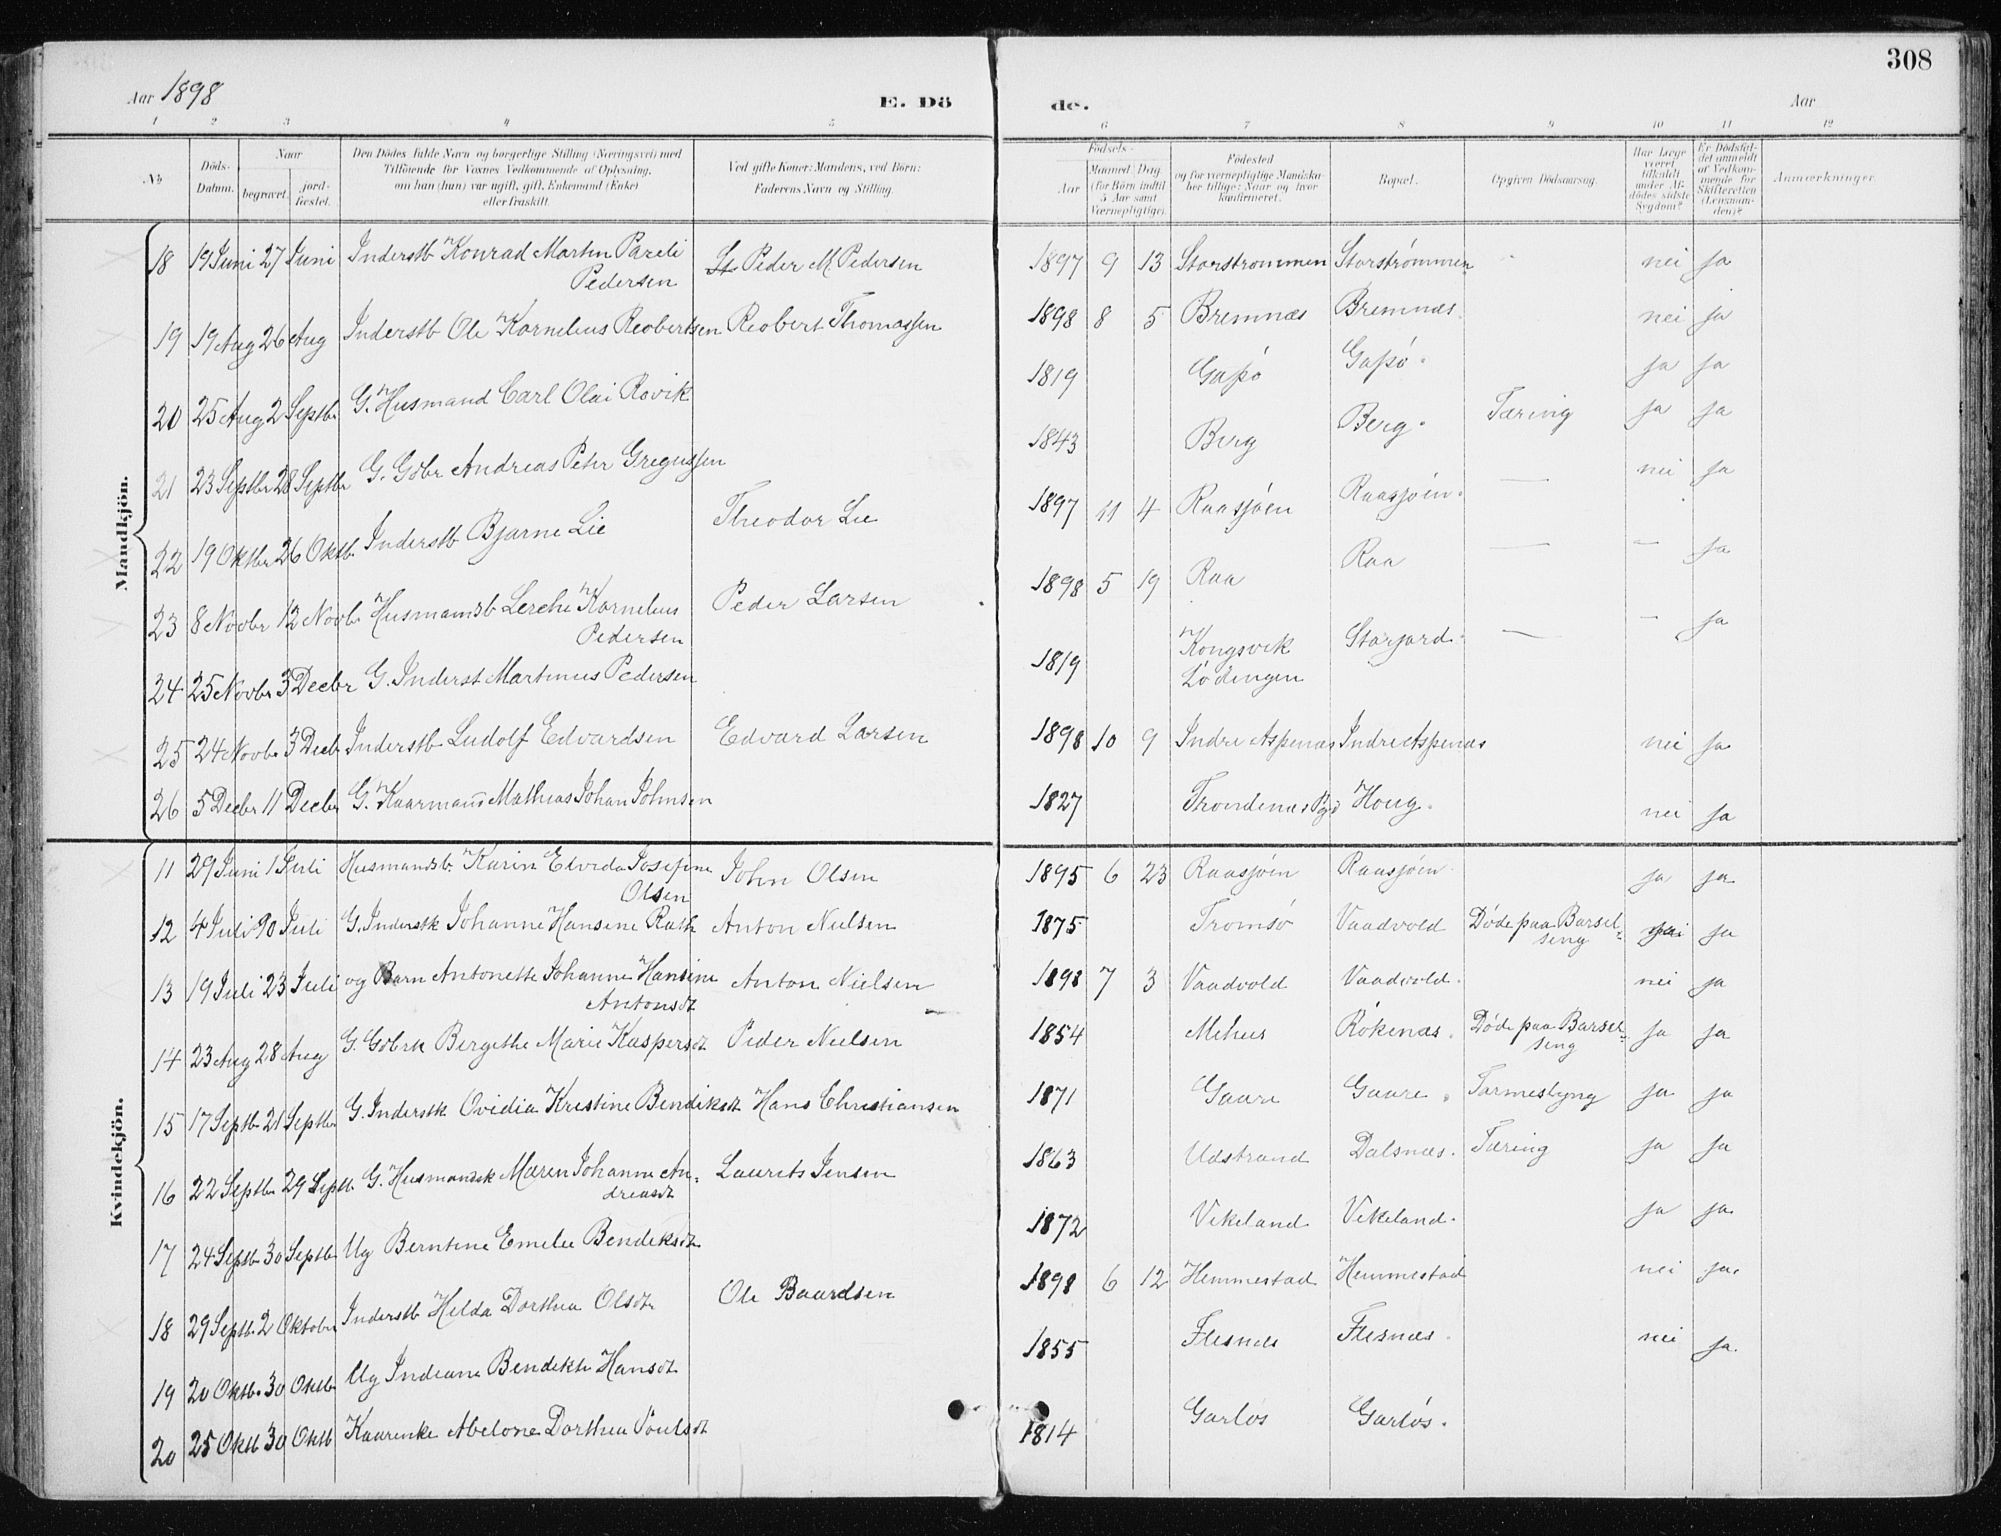 308
Aar 1898
E. Dö
de.
Aar
1 2 3 4 5 6 7 8 9 10 11 12
No
Döds-Datum.
Naar
begravet.
jord-fæstet.
Den Dödes fulde Navn og borgerlige Stilling (Næringsvei) med
Tilföiende for Voxnes Vedkommende af Oplysning,
om han (hun) var ugift, gift, Enkemand (Enke)
eller fraskilt.
Ved gifte Koner: Mandens, ved Börn:
Faderens Navn og Stilling.
Födsels-
Aar
Maaned
Dag.
(for Börn indtil
5 Aar samt
Værnepligtige).
Födested
og for værnepligtige Mandska-
ber tillige: Naar og hvor
konfirmeret.
Bopæl.
Opgiven Dödsaarsag.
Har Læge
været
tilkaldt
under Af-
dödes sidste
Sygdom?
Er Dödsfal-
det anmeldt
af Vedkom-
mende for
Skifteretten
(Lensman-
den)?
Anmærkninger.
Mandkjön.
18 19 Juni 27 Juni Inderstb Konrad Martin Pareli Pedersen St Peder M. Pedersen 1897 9 13 Storstrommen Storstrømmen nei ja
19 19 Aug 26 Aug Inderstb Ole Kornelius Reobertsen Reobert Thomassen 1898 8 5 Bremnæs Bremnæs. nei ja
20 25 Aug 2 Septbr G. Husmand Carl Olai Rovik 1819 Gapø Gapø. ja ja
21 23 Septbr 28 Septbr G. Gbbr Andreas Peter Gregussen 1843 Berg Berg. Tæring ja ja
22 19 Oktbr 26 Oktb. Inderstb Bjarne Lie Theodor Lie 1897 11 4 Raasjøen Raasjøen. — nei ja
23 8 Novbr 12 Novb. Husmandsb Lerche Kornelius Pedersen Peder Larsen 1898 5 19 Raa Raa — — ja
24 25 Novbr 3 Decbr G. Inderst Martinus Pedersen 1819 Kongsvik Lødingen Storjord. — — ja
25 24 Novb. 3 Decb Inderstb Ludolf Edvardsen Edvard Larsen 1898 10 9 Indre Aspenæs Indre Aspenæs nei ja
26 5 Decbr 11 Decbr G. Kaarmand Mathias Johan Johnsen 1827 Trondenæs Pgd Houg. nei ja
Kvindekjön.
11 29 Juni 1 Juli Husmandsb. Karin Elvida Josefine Olsen John Olsen 1895 6 23 Raasjøen Raasjøen. ja ja
12 4 Juli 10 Juli G. Inderstk Johanne Hansine Rath Anton Nielsen 1875 Tromsö Vaadvold Døde paa Barselseng nei ja
13 19 Juli 23 Juli og Barn Antonette Johanne Hansine Antonsdt Anton Nielsen 1898 7 3 Vaadvold Vaadvold. nei ja
14 23 Aug 28 Aug G. Gbbrk Bergithe Marie Kaspersdt Peder Nielsen 1854 Mehus Rökenæs. Døde paa Barselseng ja ja
15 17 Septb 21 Septbr G. Inderstk Ovidia Kristine Bendiksdt Hans Christiansen 1871 Gaare Gaare. Tarmeslyng ja ja
16 22 Septbr 29 Septb. G. Husmandsk Maren Johanne Andreasdt Laurits Jensen 1863 Udstrand Dalsnæs. Tæring ja ja
17 24 Septb 30 Septbr Ug Berntine Emelie Bendiksdt 1872 Vikeland Vikeland. ja ja.
18 29 Septb. 2 Oktobr Inderstb Hilda Dorthea Olsdtr Ole Baardsen 1898 6 12 Hemmestad Hemmestad nei ja.
19 20 Oktb. 30 Oktb Ug Indiane Bendikte Hansdt 1855 Flesnæs Flesnæs. nei ja.
20 25 Oktb 30 Oktb Kaarenke Abelone Dorthea Poulsdt 1814 Garløs Garløs.